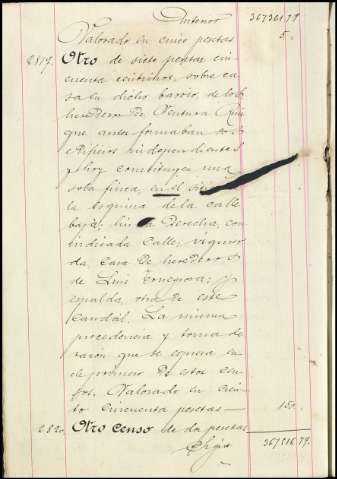 Anterior 367361 79
Valorado en cinco pesetas 5.
2819. Otro de siete pesetas cin
cuenta centimos, sobre ca
sa en dicho barrio, de los
herederos de Ventura
que antes formaban
edificios independientes
y hoy constituyen una
sola finca, en el
la esquina de la calle
baja; derecha, con
indicada calle; izquier
da, casa de herederos
de Luis y
espalda, otra de este
caudal. La misma
procedencia y toma de
razón que se espresa en
el primero de estos cen
sos. Valorado en cien
to cincuenta pesetas — 150.
2820. Otro censo de da pesetas
Sigue 367516 79.